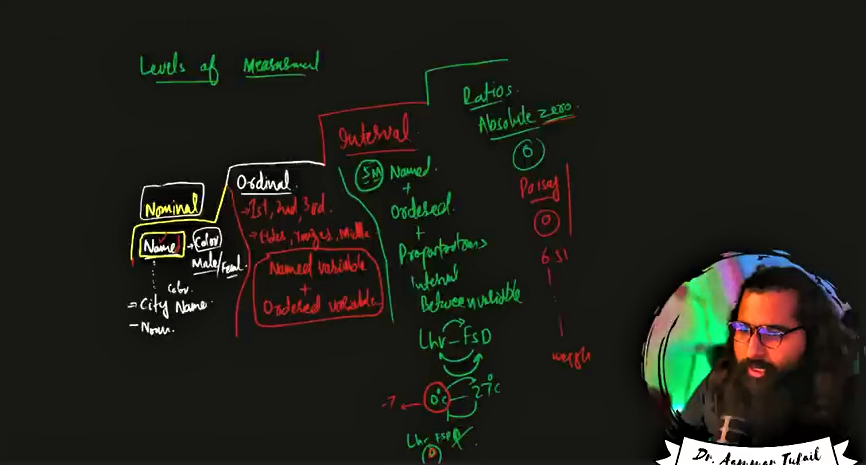 Levels of Measusment
Nominal
Name → Color
Male/Femal
Color
= City Name
- Noun.
Ordinal
→ 1st, 2nd, 3rd.
Named variable
+
Ordered variable
Interval
5M Named
+
Ordered
+
Proportitons
Interval
Between variable
Lhr — FSD
-7 ← 0°C 27°C
Lhr FSD
0
Ratios
Absolute zero
0
0
6 SI
weigh
Dr. Aammar Tufail